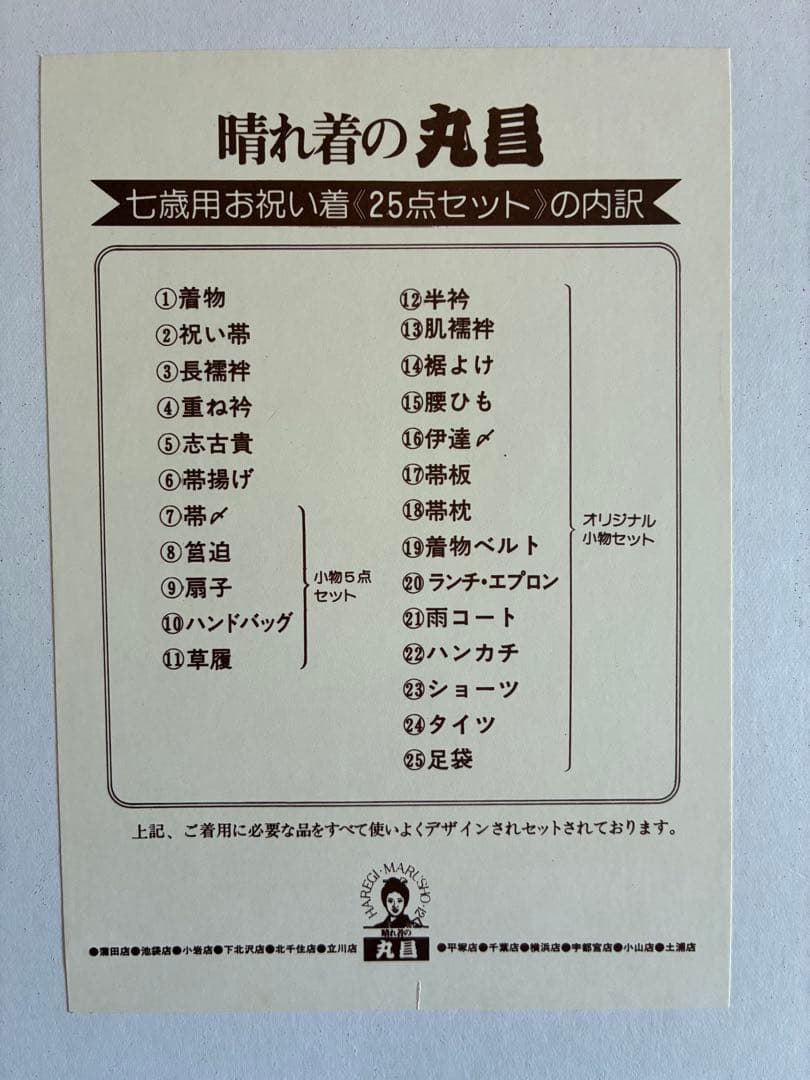 晴れ着の丸昌
七歳用お祝い着《25点セット》の内訳
①着物
②祝い帯
③長襦袢
④重ね衿
⑤志古貴
⑥帯揚げ
⑦帯〆
⑧筥迫
⑨扇子
⑩ハンドバッグ
⑪草履
小物5点
セット
⑫半衿
⑬肌襦袢
⑭裾よけ
⑮腰ひも
⑯伊達〆
⑰帯板
⑱帯枕
⑲着物ベルト
⑳ランチ・エプロン
㉑雨コート
㉒ハンカチ
㉓ショーツ
㉔タイツ
㉕足袋
オリジナル
小物セット
上記、ご着用に必要な品をすべて使いよくデザインされセットされております。
HAREGI・MARUSHO・
晴れ着の
丸昌
●蒲田店●池袋店●小岩店●下北沢店●北千住店●立川店
●平塚店●千葉店●横浜店●宇都宮店●小山店●土浦店